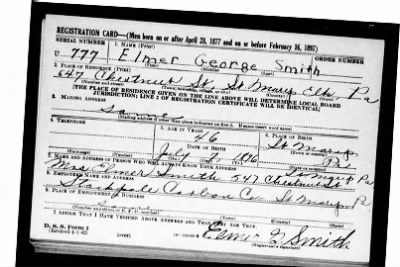 REGISTRATION CARD—(Men born on or after April 28, 1877 and on or before February 16, 1897)
SERIAL NUMBER 1. NAME (Print) ORDER NUMBER
U 777 Elmer George Smith
2. PLACE OF RESIDENCE (Print)
547 Chestnut St. St Marys Elk Pa
(THE PLACE OF RESIDENCE GIVEN ON THE LINE ABOVE WILL DETERMINE LOCAL BOARD
JURISDICTION; LINE 2 OF REGISTRATION CERTIFICATE WILL BE IDENTICAL)
3. MAILING ADDRESS
Same
4. TELEPHONE 5. AGE IN YEARS 6. PLACE OF BIRTH
46 St Marys
July 7 1896 Pa
7. NAME AND ADDRESS OF PERSON WHO WILL ALWAYS KNOW YOUR ADDRESS
Mrs Elmer Smith 547 Chestnut St St Marys Pa
8. EMPLOYER'S NAME AND ADDRESS
Stackpole Carbon Co St Marys Pa
9. PLACE OF EMPLOYMENT OR BUSINESS
Same
I AFFIRM THAT I HAVE VERIFIED ABOVE ANSWERS AND THAT THEY ARE TRUE.
D. S. S. Form 1
Elmer G Smith